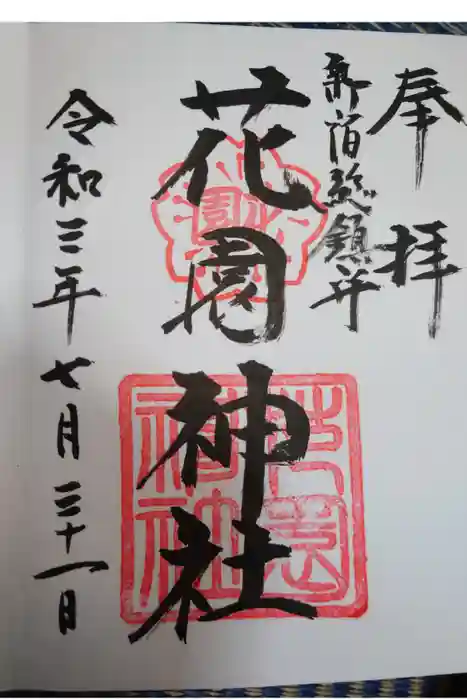 奉拝
新宿総鎮守
花園神社
令和三年七月三十一日
花園
花園神社